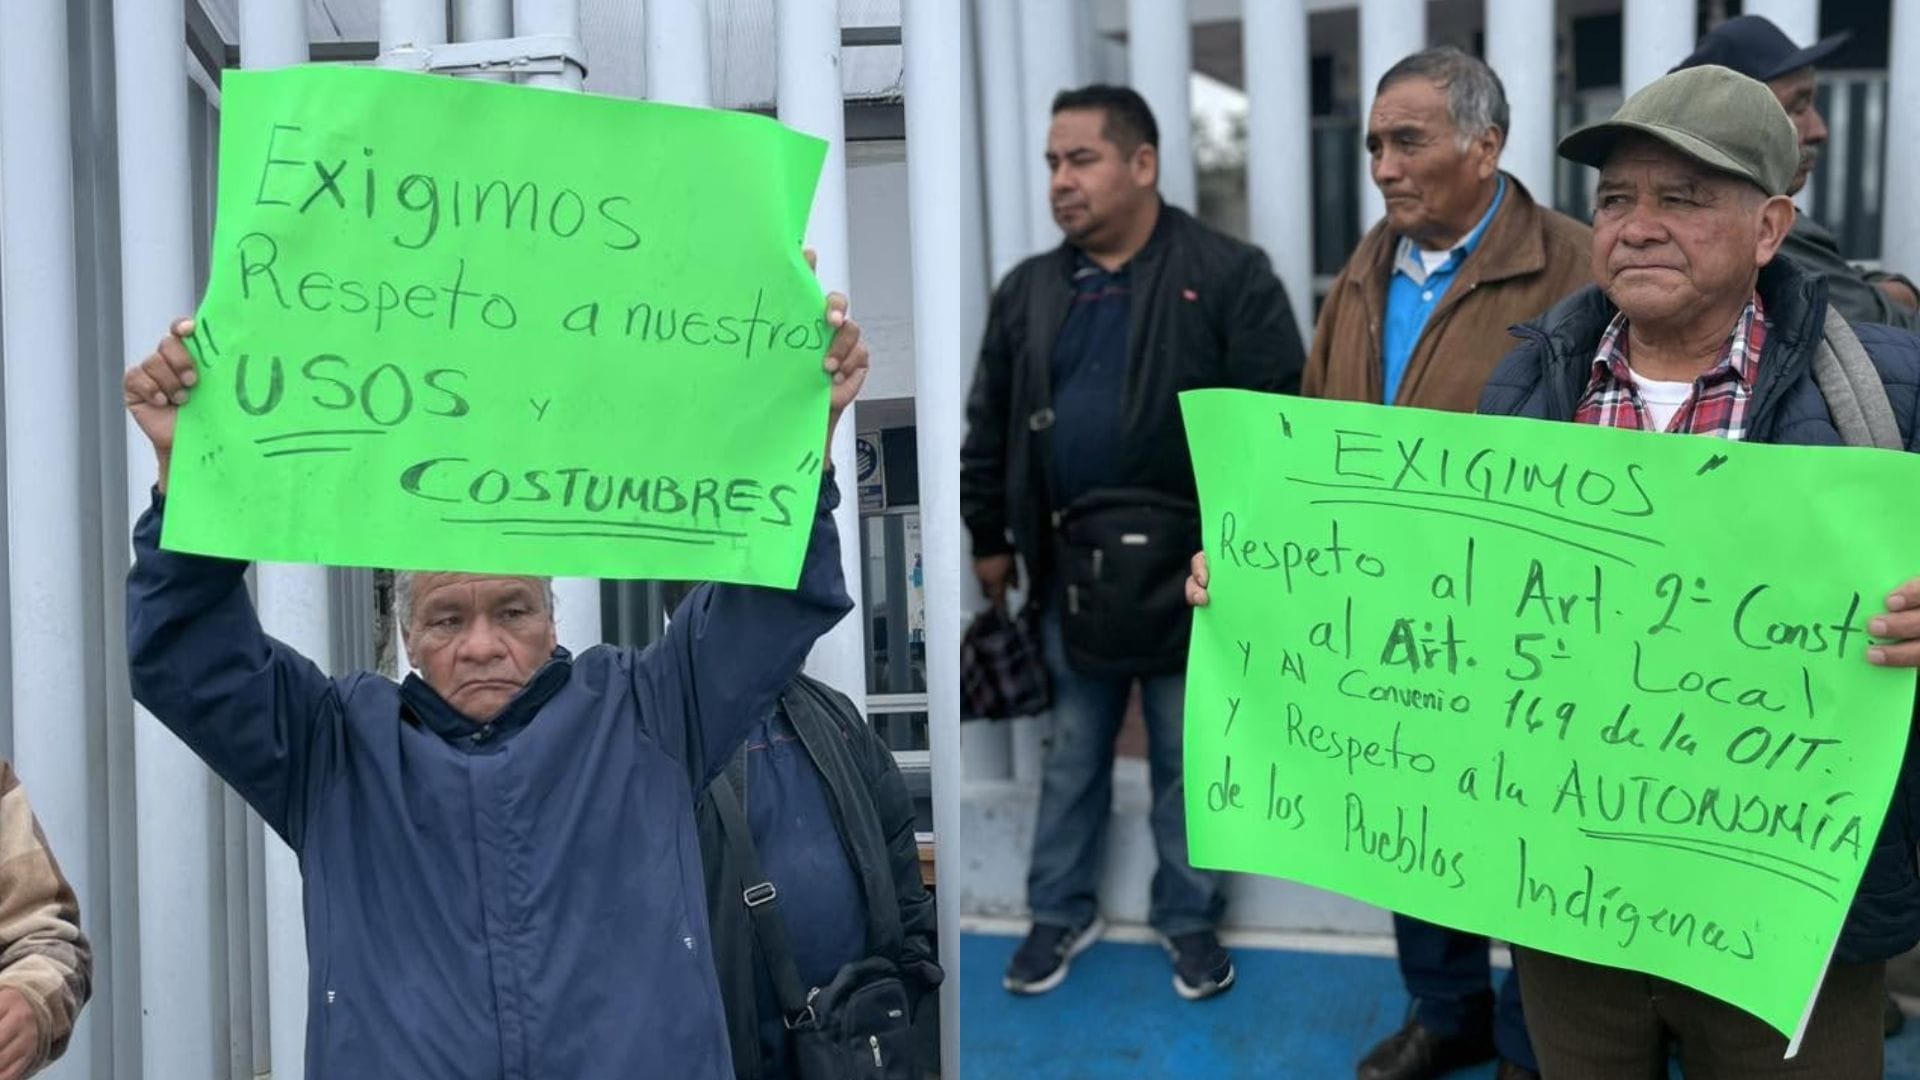 Exigimos
Respeto a nuestros
"USOS y
"COSTUMBRES"
"EXIGIMOS"
Respeto al Art. 2º Const.
al Art. 5º Local
y Al Convenio 169 de la OIT.
y Respeto a la AUTONOMÍA
de los Pueblos Indígenas